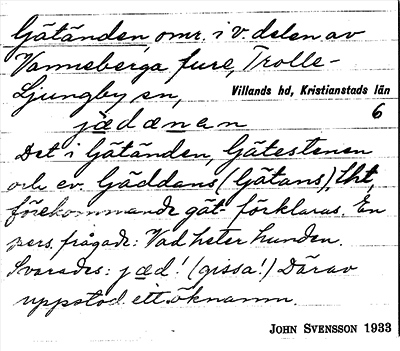 Gätänden, omr. i v. delen av
Vanneberga fure, Trolle-
Ljungby sn, Villands hd, Kristianstads län
6
jædænan
Det i Gätänden, Gätestenen
och ev. Gäddans (Gätans), Lht,
förekommande gät- förklaras. En
pers. frågade: Vad heter hunden.
Svarades: jæd! (gissa!) Därav
uppstod ett öknamn.
JOHN SVENSSON 1933